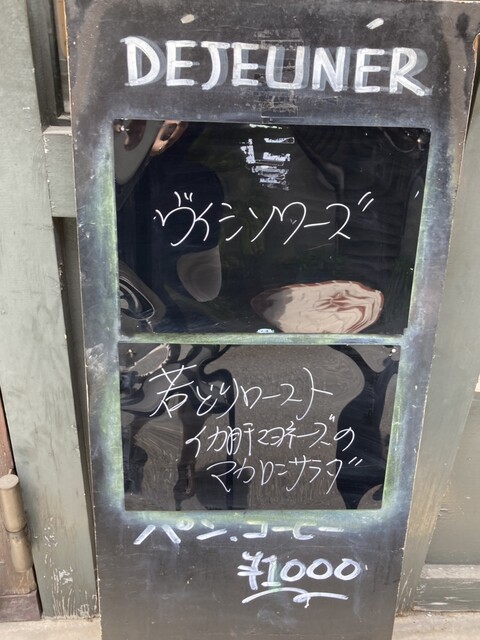 DEJEUNER
ヴィシソワーズ
若どりロースト
イカ肝マヨネーズの
マカロニサラダ
パン.コーヒー
¥1000